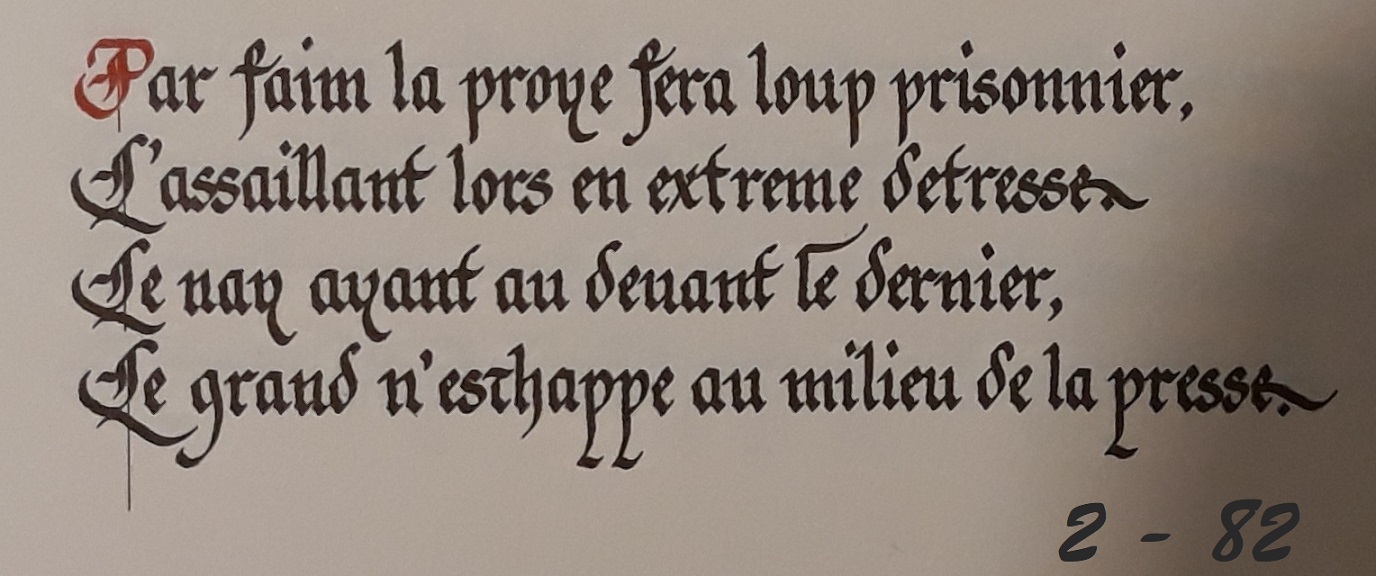 Par faim la proye fera loup prisonnier,
L'assaillant lors en extreme detresse
Le nay ayant au deuant le dernier,
Le grand n'eschappe au milieu de la presse.
2 - 82